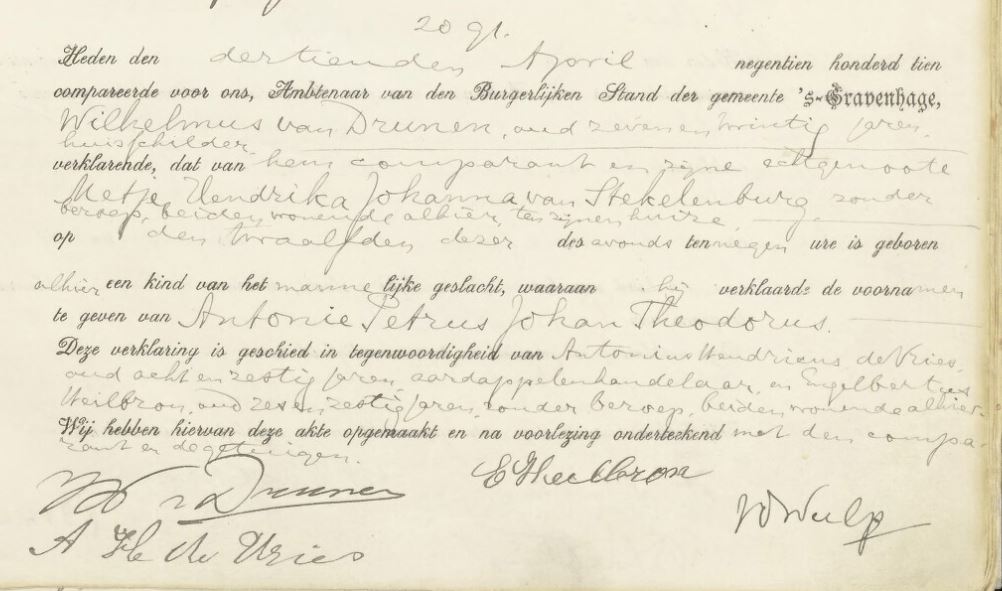 2091.
Heden den dertienden April negentien honderd tien
compareerde voor ons, Ambtenaar van den Burgerlijken Stand der gemeente 's-Gravenhage,
Wilhelmus van Drunen, oud zeven en twintig jaren,
huisschilder
verklarende, dat van hem comparant en zijne echtgenoote
Metje Hendrika Johanna van Stekelenburg zonder
beroep, beiden wonende alhier, ten zijnen huize
op den twaalfden dezer des avonds ten negen ure is geboren
alhier een kind van het mannelijke geslacht, waaraan hij verklaarde de voornamen
te geven van Antonie Petrus Johan Theodorus.
Deze verklaring is geschied in tegenwoordigheid van Antonius Hendricus de Vries,
oud acht en zestig jaren, aardappelenhandelaar, en Engelbertus
Heilbron, oud zes en zestig jaren, zonder beroep, beiden wonende alhier.
Wij hebben hiervan deze akte opgemaakt en na voorlezing onderteekend met den compa-
rant en de getuigen.
W v Drunen
E Heilbron
A H de Vries